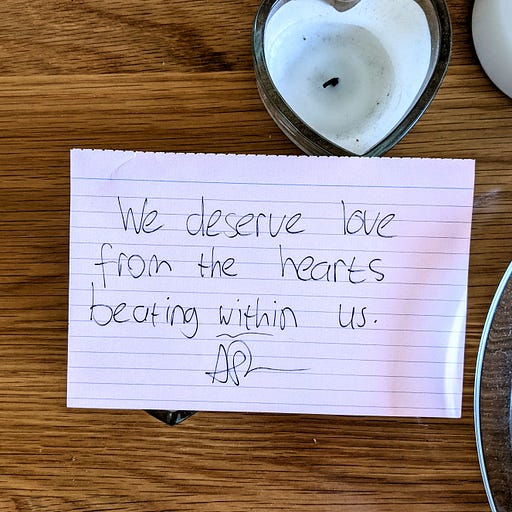 We deserve love
from the hearts
beating within us.